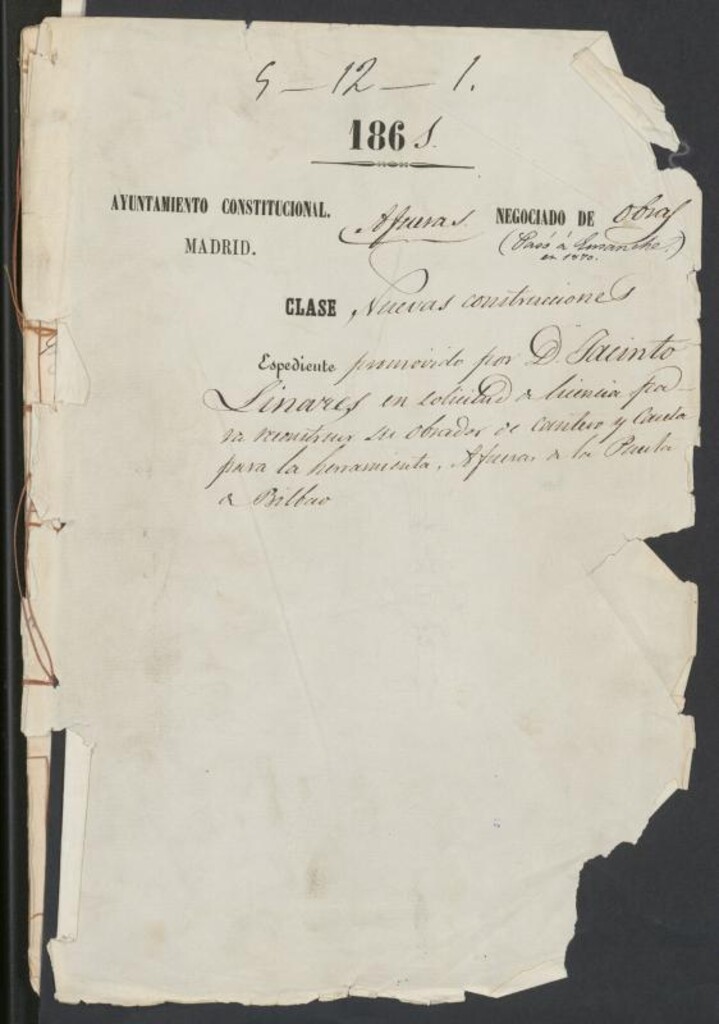 5 - 12 - 1.
186
AYUNTAMIENTO CONSTITUCIONAL.
MADRID.
Afueras
NEGOCIADO DE Obras
(Pasó á Ensanche)
en 1870.
CLASE Nuevas construcciones
Espediente promovido por D. Jacinto
Linares en solicitud de licencia pa
ra reconstruir su obrador de cantero y
para la herramienta. Afueras de la Puerta
de Bilbao